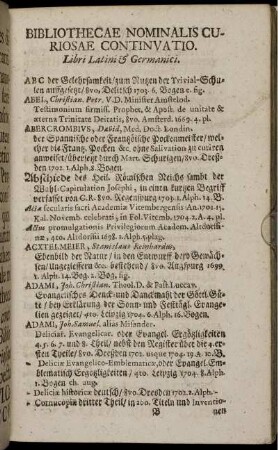 BIBLIOTHECAE NOMINALIS CU-
RIOSAE CONTINVATIO.
Libri Latini & Germanici.
ABC der Gelehrsamkeit/ zum Nutzen der Trivial-Schu-
len auffgesetzt/ 8vo, Delitsch 1703. 6. Bogen c. fig.
ABEL, Christian. Petr. V. D. Minister Amstelod.
Testimonium firmiss. Prophet. & Apost. de unitate &
aeterna Trinitate Deitatis, 8vo. Amsterd. 1669. 4. pl.
ABERCROMBIUS, David, Med. Doct. Londin.
der Spanische oder Frantzösische Pockenmeister/ wel-
cher die Frantz. Pocken &c. ohne Salivation zu curiren
anweiset/ übersetzt durch Mart. Schurigen/ 8vo. Dreß-
den 1702. 1. Alph. 8. Bogen.
Abschiede des Heil. Römischen Reichs sambt der
Wahl-Capitulation Josephi, in einen kurtzen Begriff
verfasset von G. R. 8vo. Regenspurg 1705. 1. Alph. 14. B.
Acta secularia sacri Academiae Vitembergensis An. 1702. 15.
Kal. Novemb. celebrati, in Fol. Vitemb. 1704. 2. A. 4. pl.
Acta promulgationis Privilegiorum Academ. Altdorfi-
nae, 4to, Altdorfii 1698. 1. Alph. 4. plag.
ACXTELMEIER, Stanislaus Reinhardus,
Ebenbild der Natur/ in den Entwurff der Gewäch-
sen/ Ungezieffern &c. bestehend/ 8vo. Augspurg 1699.
1. Alph. 14. Bog. 2. Bog. fig.
ADAMI, Joh. Christian. Theol. D. & Past. Luccav.
Evangelisches Denck- und Danckmahl der Göttl. Gü-
te/ bey Erklärung der Sonn- und Festtägl. Evange-
lien gezeiget/ 4to, Leipzig 1704. 6. Alph. 16. Bogen.
ADAMI, Joh. Samuel. alias Misander.
Deliciae Evangelicae, oder Evangel. Ergötzligkeiten
4. 5. 6. 7. und 8. Theil/ nebst den Register über die 4. er-
sten Theile/ 8vo. Dreßden 1702. usque 1704. 19. A. 10. B.
- Deliciae Evangelico-Emblematicae, oder Evangel. Em-
blematisch Ergötzligkeiten/ 4to, Leipzig 1704. 8. Alph.
1. Bogen ch. aug.
- Deliciae historicae deutsch/ 8vo. Dresden 1702. 1. Alph.
- Cornucopiae dritter Theil/ in 200. Titeln und Inventio-
B nen